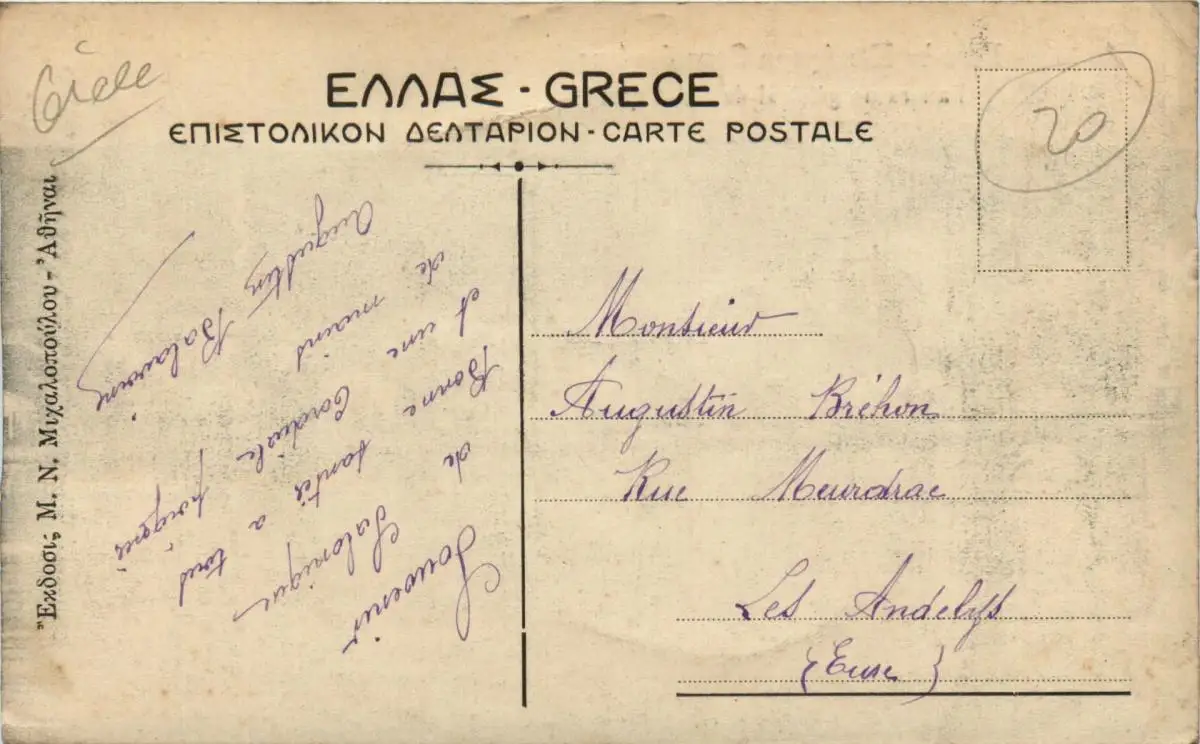 Grèce
ΕΛΛΑΣ - GRECE
ΕΠΙΣΤΟΛΙΚΟΝ ΔΕΛΤΑΡΙΟΝ - CARTE POSTALE
20
Ἔκδοσις Μ. Ν. Μιχαλοπούλου - Ἀθῆναι
Souvenir
de Salonique
Bonne santés a tous
et une Cordiale poigné
de mains
Augustin Balavoine
Monsieur
Augustin Bréhon
Rue Meurdrac
Les Andelys
(Eure)